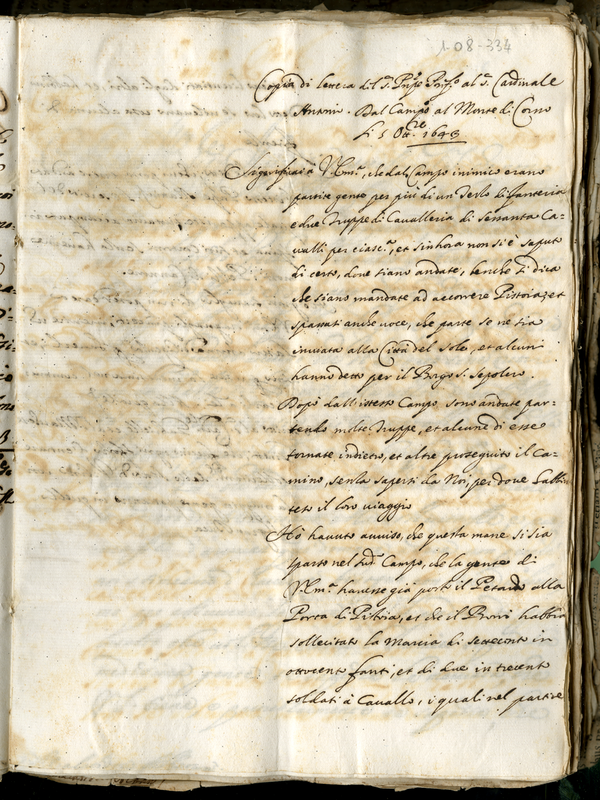 1-08-334
Copia di lettera del S. Prñpe Pref.º al S. Cardinale
Antonio. Dal Campo al Monte di Corno
li 5 Ott.re 1643
Significai à V. Em.ª, che dal Campo inimico erano
partite gente per più di un Terzo d'Infanteria
e due Truppe di Cavalleria di sessanta Ca=
valli per ciasc.ª, et sinhora non si è saputo
di certo, dove siano andate, benche si dica
che siano mandate ad accorrere Pistoia, et
sparsasi anche voce, che parte se ne sia
inviata alla Città del Sole, et alcuni
hanno detto per il Borgo S. Sepolcro.
Dopo dall'istesso Campo sono andate par=
tendo molte Truppe, et alcune di esse
tornate indietro, et altre proseguito il Ca=
mino, senza sapersi da Noi, per dove habbi
teso il loro viaggio
Hò havuto avviso, che questa mane si sia
sparso nel sud.º Campo, che la gente di
V. Em.ª havesse già posto il Petardo alla
Porta di Pistoia, et che il Borri habbia
sollecitato la Marcia di settecento in
ottocento fanti, et di due in trecento
soldati à Cavallo, i quali nel partire